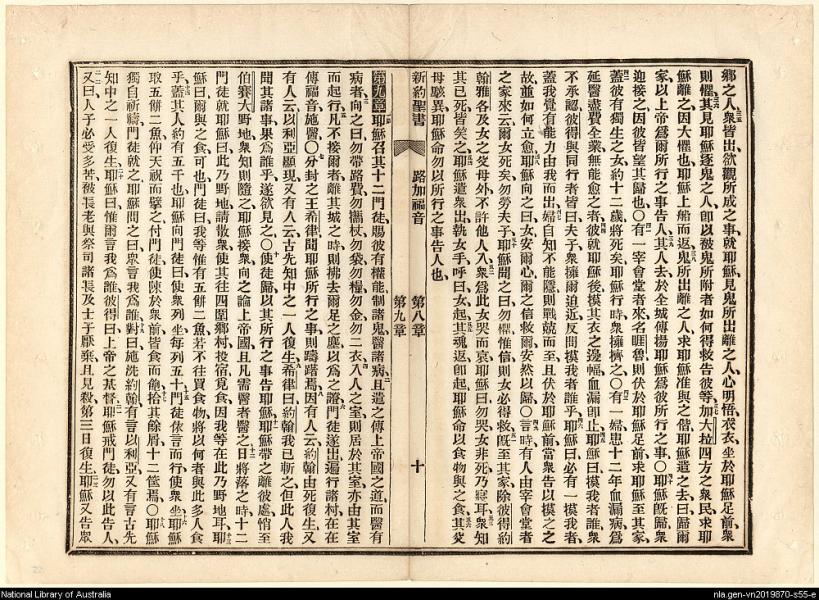 鄉之人衆皆出欲觀所成之事就耶穌見鬼所出離之人心明悟衣衣坐於耶穌足前衆
則懼其見耶穌逐鬼之人卽以被鬼所附者如何得救告彼等加大拉四方之衆民求耶
穌離之因大懼也耶穌上船而返鬼所出離之人求耶穌准與之偕耶穌遣之去曰歸爾
家以上帝爲爾所行之事告人其人去於全城傳揚耶穌爲彼所行之事〇耶穌旣歸衆
迎接之因彼皆望其歸也〇有一宰會堂者來名睚魯則伏於耶穌足前求耶穌至其家
蓋彼有獨生之女約十二歲將死矣耶穌行時衆擁擠之〇有一婦患十二年血漏病爲
延醫盡費全業無能愈之者彼就耶穌後摸其衣之邊幅血漏卽止耶穌曰摸我者誰衆
不承認彼得與同行者皆曰夫子衆擁爾迫近反問摸我者誰乎耶穌曰必有一摸我者
蓋我覺有能力由我而出婦自知不能隱則戰兢而至且伏於耶穌前當衆告以摸之之
故並如何立愈耶穌向之曰女安爾心爾之信救爾安然以歸〇言時有人由宰會堂者
之家來云爾女死矣勿勞夫子耶穌聞之曰勿懼惟信則女必得救旣至其家除彼得約
翰雅各及女之父母外不許他人入衆爲此女哭而哀耶穌曰勿哭女非死乃寢耳衆知
其已死皆笑之耶穌遣衆出執女手呼曰女起其魂返卽起耶穌命以食物與之食其父
母駭異耶穌命勿以所行之事告人也
新約聖書
路加福音
第八章
第九章
十
第九章耶穌召其十二門徒賜彼有權能制諸鬼醫諸病且遣之傳上帝國之道而醫有
病者向之曰勿帶路費勿攜杖勿袋勿糧勿金勿二衣入人之室則居於其室亦由其室
而起行凡不接爾者離其城之時則拂去爾足之塵以爲之證門徒遂出遍行諸村在在
傳福音施醫〇分封之王希律聞耶穌所行之事則躊躇焉因有人云約翰由死復生又
有人云以利亞顯現又有人云古先知中之一人復生希律曰約翰我已斬之但此人我
聞其諸事果爲誰乎遂欲見之〇使徒歸以其所行之事告耶穌耶穌帶之離彼處悄至
伯賽大野地衆知則隨之耶穌接衆向之論上帝國且凡需醫者醫之日將落之時十二
門徒就耶穌曰此乃野地請散衆使其往四圍鄉村投宿覓食因我等在此乃野地耳耶
穌曰爾與之食可也門徒曰我等惟有五餅二魚若不往買食物將以何者與此多人食
乎蓋其人約有五千也耶穌向門徒曰使衆列坐每列五十門徒依言而行使衆坐耶穌
取五餅二魚仰天祝而擘之付門徒使陳於衆前皆食而飽拾其餘屑十二筐焉〇耶穌
獨自祈禱門徒就之耶穌問之曰衆言我爲誰對曰施洗約翰有言以利亞又有言古先
知中之一人復生耶穌曰惟爾言我爲誰彼得曰上帝之基督耶穌戒門徒勿以此告人
又曰人子必受多苦被長老與祭司諸長及士子厭棄且見殺第三日復生耶穌又告衆
National Library of Australia
nla.gen-vn2019870-s55-e